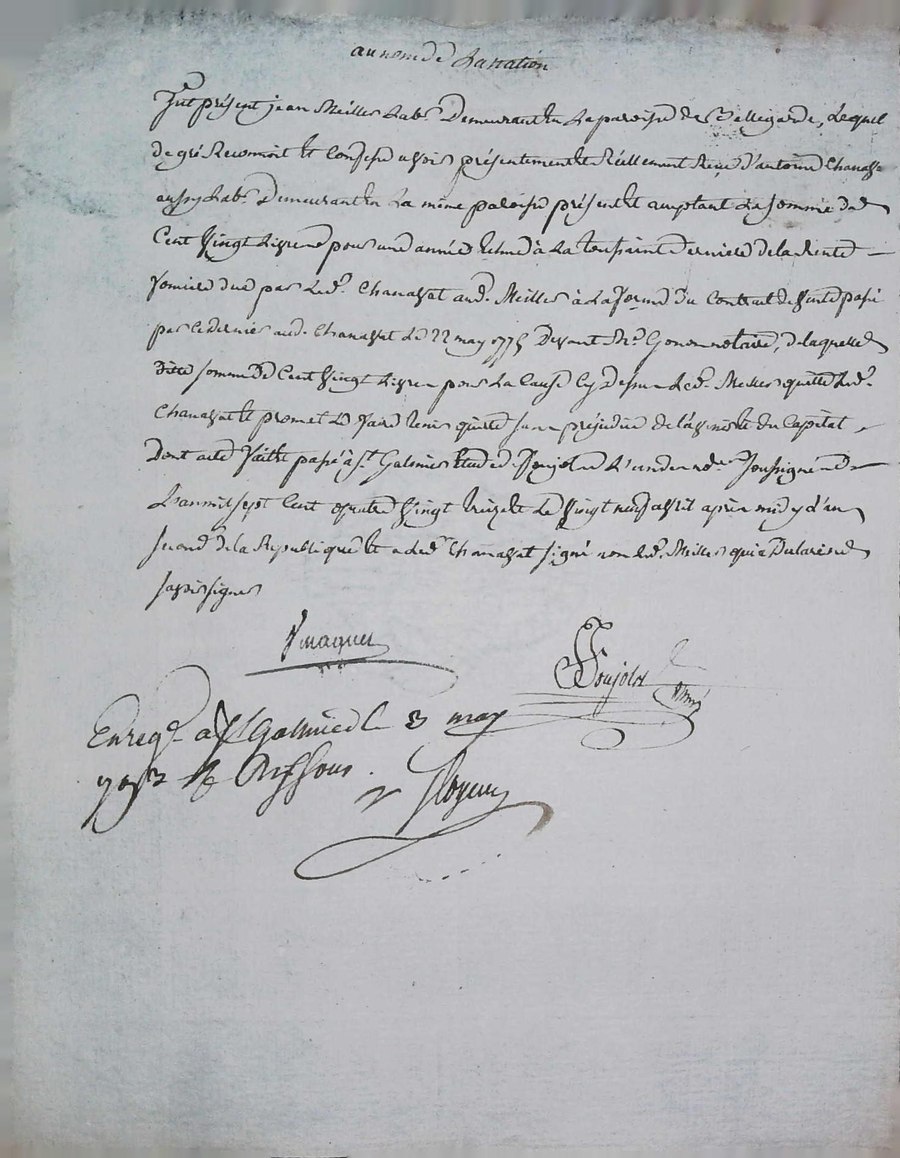 au nom de La nation
fut présent jean Meiller Lab.r Demeurant En La paroisse de Bellegarde, Lequel
de gré Reconnoit Et Confesse avoir présentement Et Réellement Reçu d'antoine Chanasse
aussy Lab.r Demeurant En La même paroisse présent Et acceptant La somme de
Cent Vingt Livres pour une année Echue à La toussaint Derniere de la Rente
fonciere due par Led.t Chanassat aud. Meiller à La forme du Contrat de Vente passé
par Ce dernier aud. Chanassat Le 22 may 1775 Devant Me. Gonon notaire, de laquelle
ditte somme de Cent Vingt Livres pour La Cause Cy Dessus Led.t Meiller quitte Led.t
Chanassat Et promet Le faire tenir quitte sans préjudice de l'avenir Et du Capital
Dont acte fait Et passé à St Galmier Etude de Poujolat L'un des no.res soussigné
L'an mil sept Cent quatre Vingt treize Et Le Vingt neuf avril après midy d'an
second de la Republique Et a Led.t Chanassat signé non Led. Meiller qui a Declaré ne
savoir signer
Poujolat
Enreg.é a St Galmier Le 3 may
1793 R